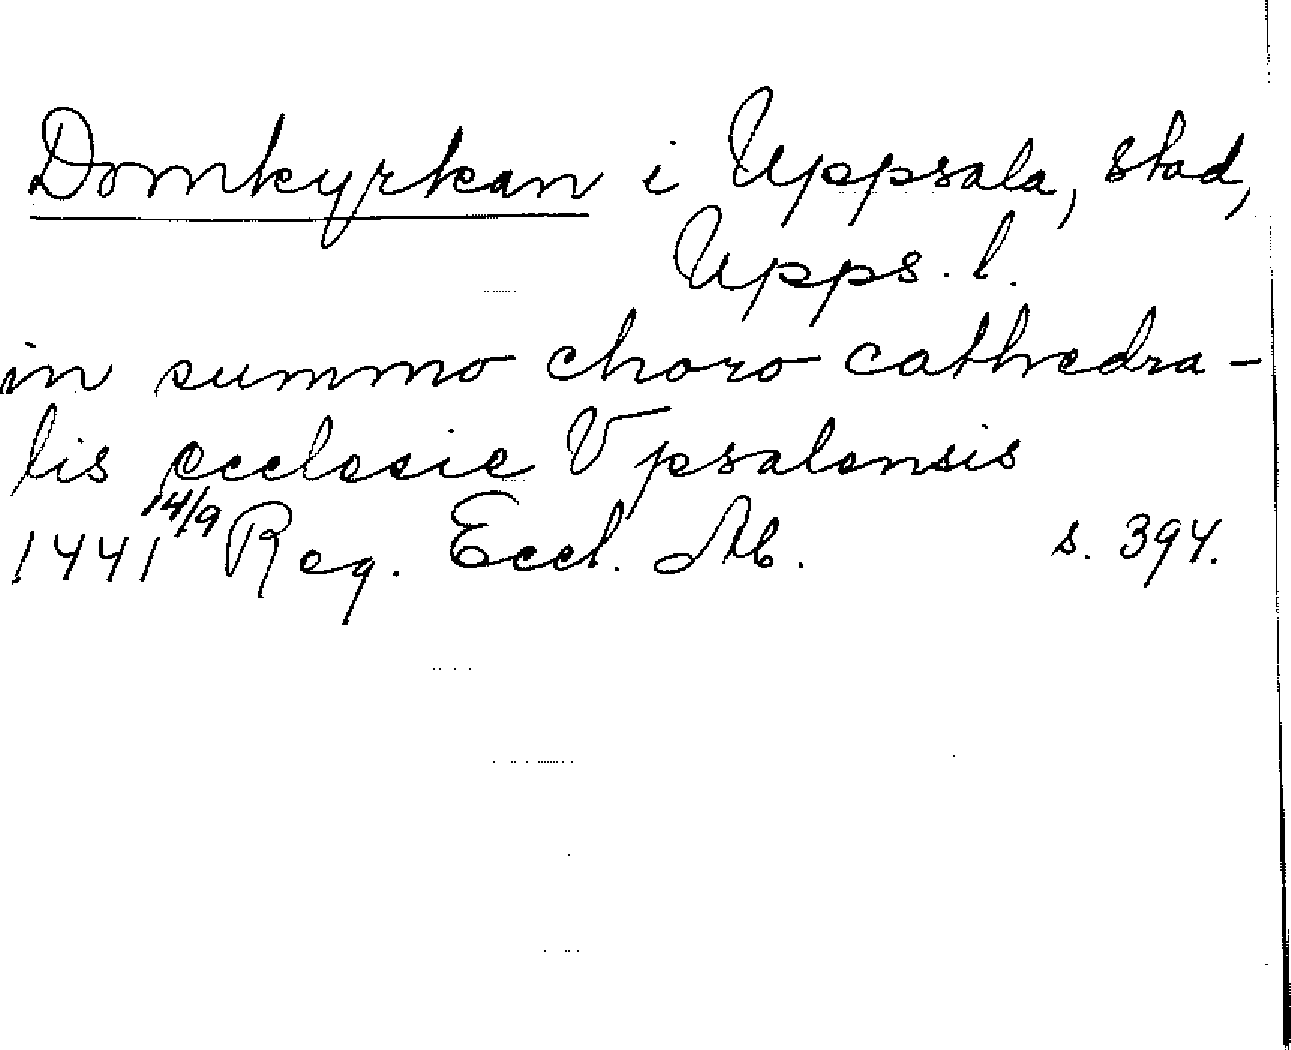 Domkyrkan i Uppsala, stad,
Upps. l.
in summo choro cathedra-
lis ecclesie Vpsalensis
1441 14/9 Reg. Eccl. Ab. s. 394.